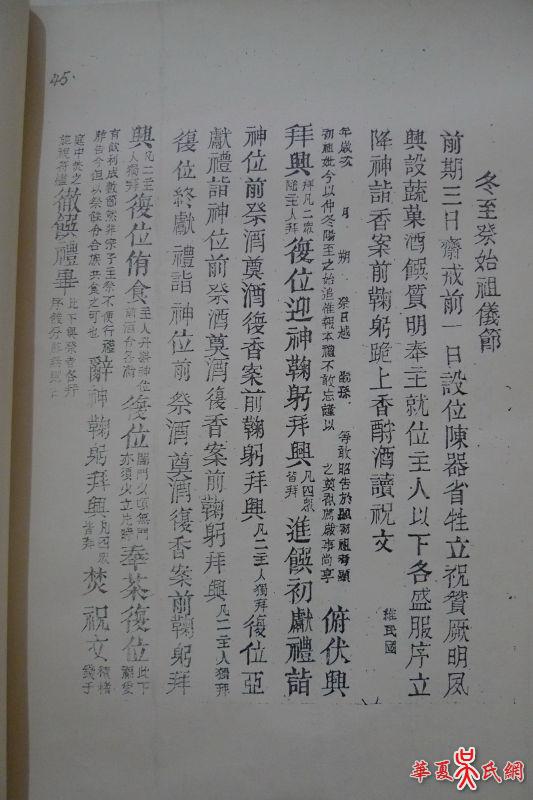 45.
冬至祭始祖儀節
前期三日齋戒前一日設位陳器省牲立祝贊厥明夙
興設蔬菓酒饌質明奉主就位主人以下各盛服序立
降神詣香案前鞠躬跪上香酹酒讀祝文 維民國
年歲次 月 朔 祭日越 嗣孫 等敢昭告於顯初祖考顯
初祖妣今以仲冬陽至之始追惟報本禮不敢忘謹以 之奠祇薦歲事尚享 俯伏興
拜興 凡二衆隨主人拜 復位迎神鞠躬拜興 凡四衆皆拜 進饌初獻禮詣
神位前祭酒奠酒復香案前鞠躬拜興 凡二主人獨拜 復位亞
獻禮詣神位前祭酒奠酒復香案前鞠躬拜興 凡二主人獨拜
復位終獻禮詣神位前祭酒奠酒復香案前鞠躬拜
興 凡二主人獨拜 復位侑食 主人升 神位前 復位 闔門 無門 奉茶復位 此下
有飲利成數節然非宗子主祭不便行 禮辭神鞠躬拜興 凡四衆皆拜 焚祝文
庭中焚之 徹饌禮畢 此下與祭者各拜
華夏吳氏網